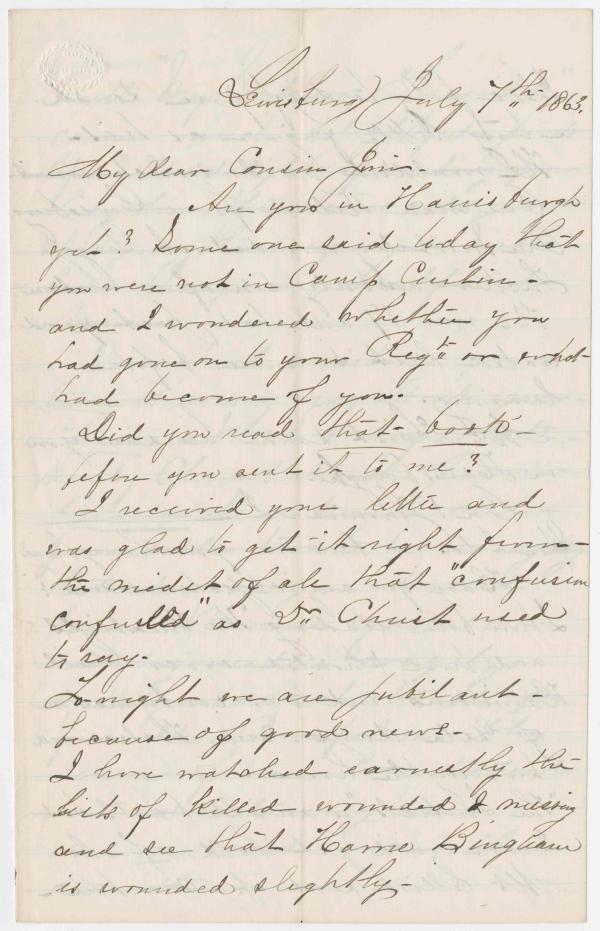 Lewisburg July 7th 1863.
My dear Cousin Jim-
Are you in Harrisburgh
yet? Some one said today that
you were not in Camp Curtin-
and I wondered whether you
had gone on to your Regt or what
had become of you.
Did you read that book-
before you sent it to me?
I received your letter and
was glad to get it right from-
the midst of all that "confusion
confused" as Dr Christ used
to say-
To-night we are jubilant-
because of good news-
I have watched earnestly the
lists of killed wounded & missing
and see that Horace Bingham
is wounded slightly-